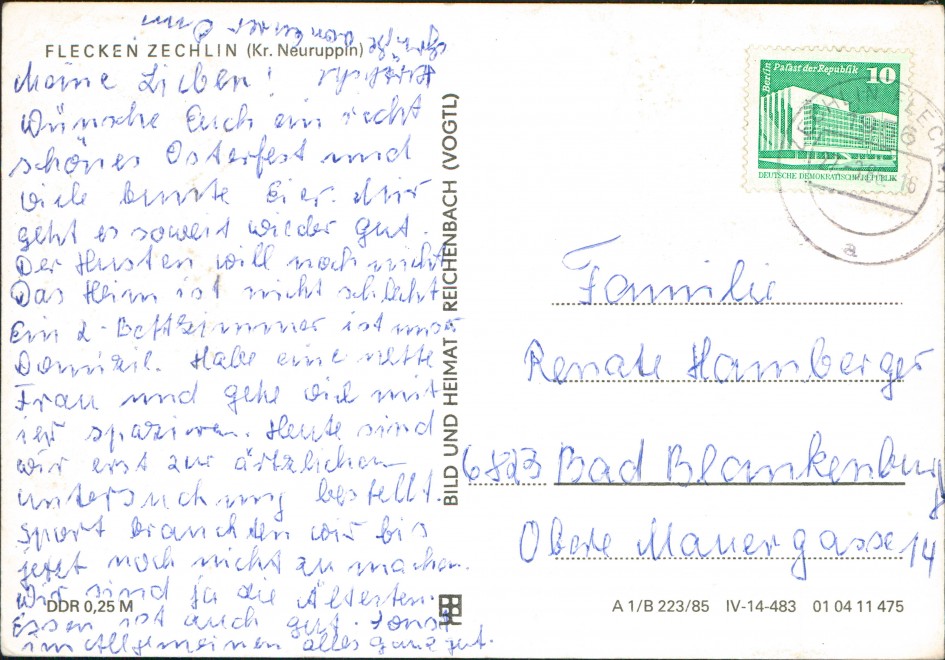 FLECKEN ZECHLIN (Kr. Neuruppin)
Meine Lieben!
Wünsche Euch ein recht
schönes Osterfest und
viele bunte Eier. Mir
geht es soweit wieder gut.
Der Husten will noch nicht
Das Heim ist nicht schlecht
Ein 2-Bettzimmer ist unser
Domizil. Habe eine nette
Frau und gehe viel mit
ihr spazieren. Heute sind
wir erst zur ärtzlichen
untersuchung bestellt.
Sport brauchten wir bis
jetzt noch nicht zu machen.
Wir sind ja die Ältesten.
Essen ist auch gut. Sonst
im Allgemeinen alles ganz gut.
Herzliche
Grüße von Eurer Omi
DDR 0,25 M
BILD UND HEIMAT REICHENBACH (VOGTL)
Berlin Palast der Republik 10
DEUTSCHE DEMOKRATISCHE REPUBLIK
a
Familie
Renate Hamberger
6823 Bad Blankenburg
Obere Mauergasse 14
A 1/B 223/85 IV-14-483 01 04 11 475